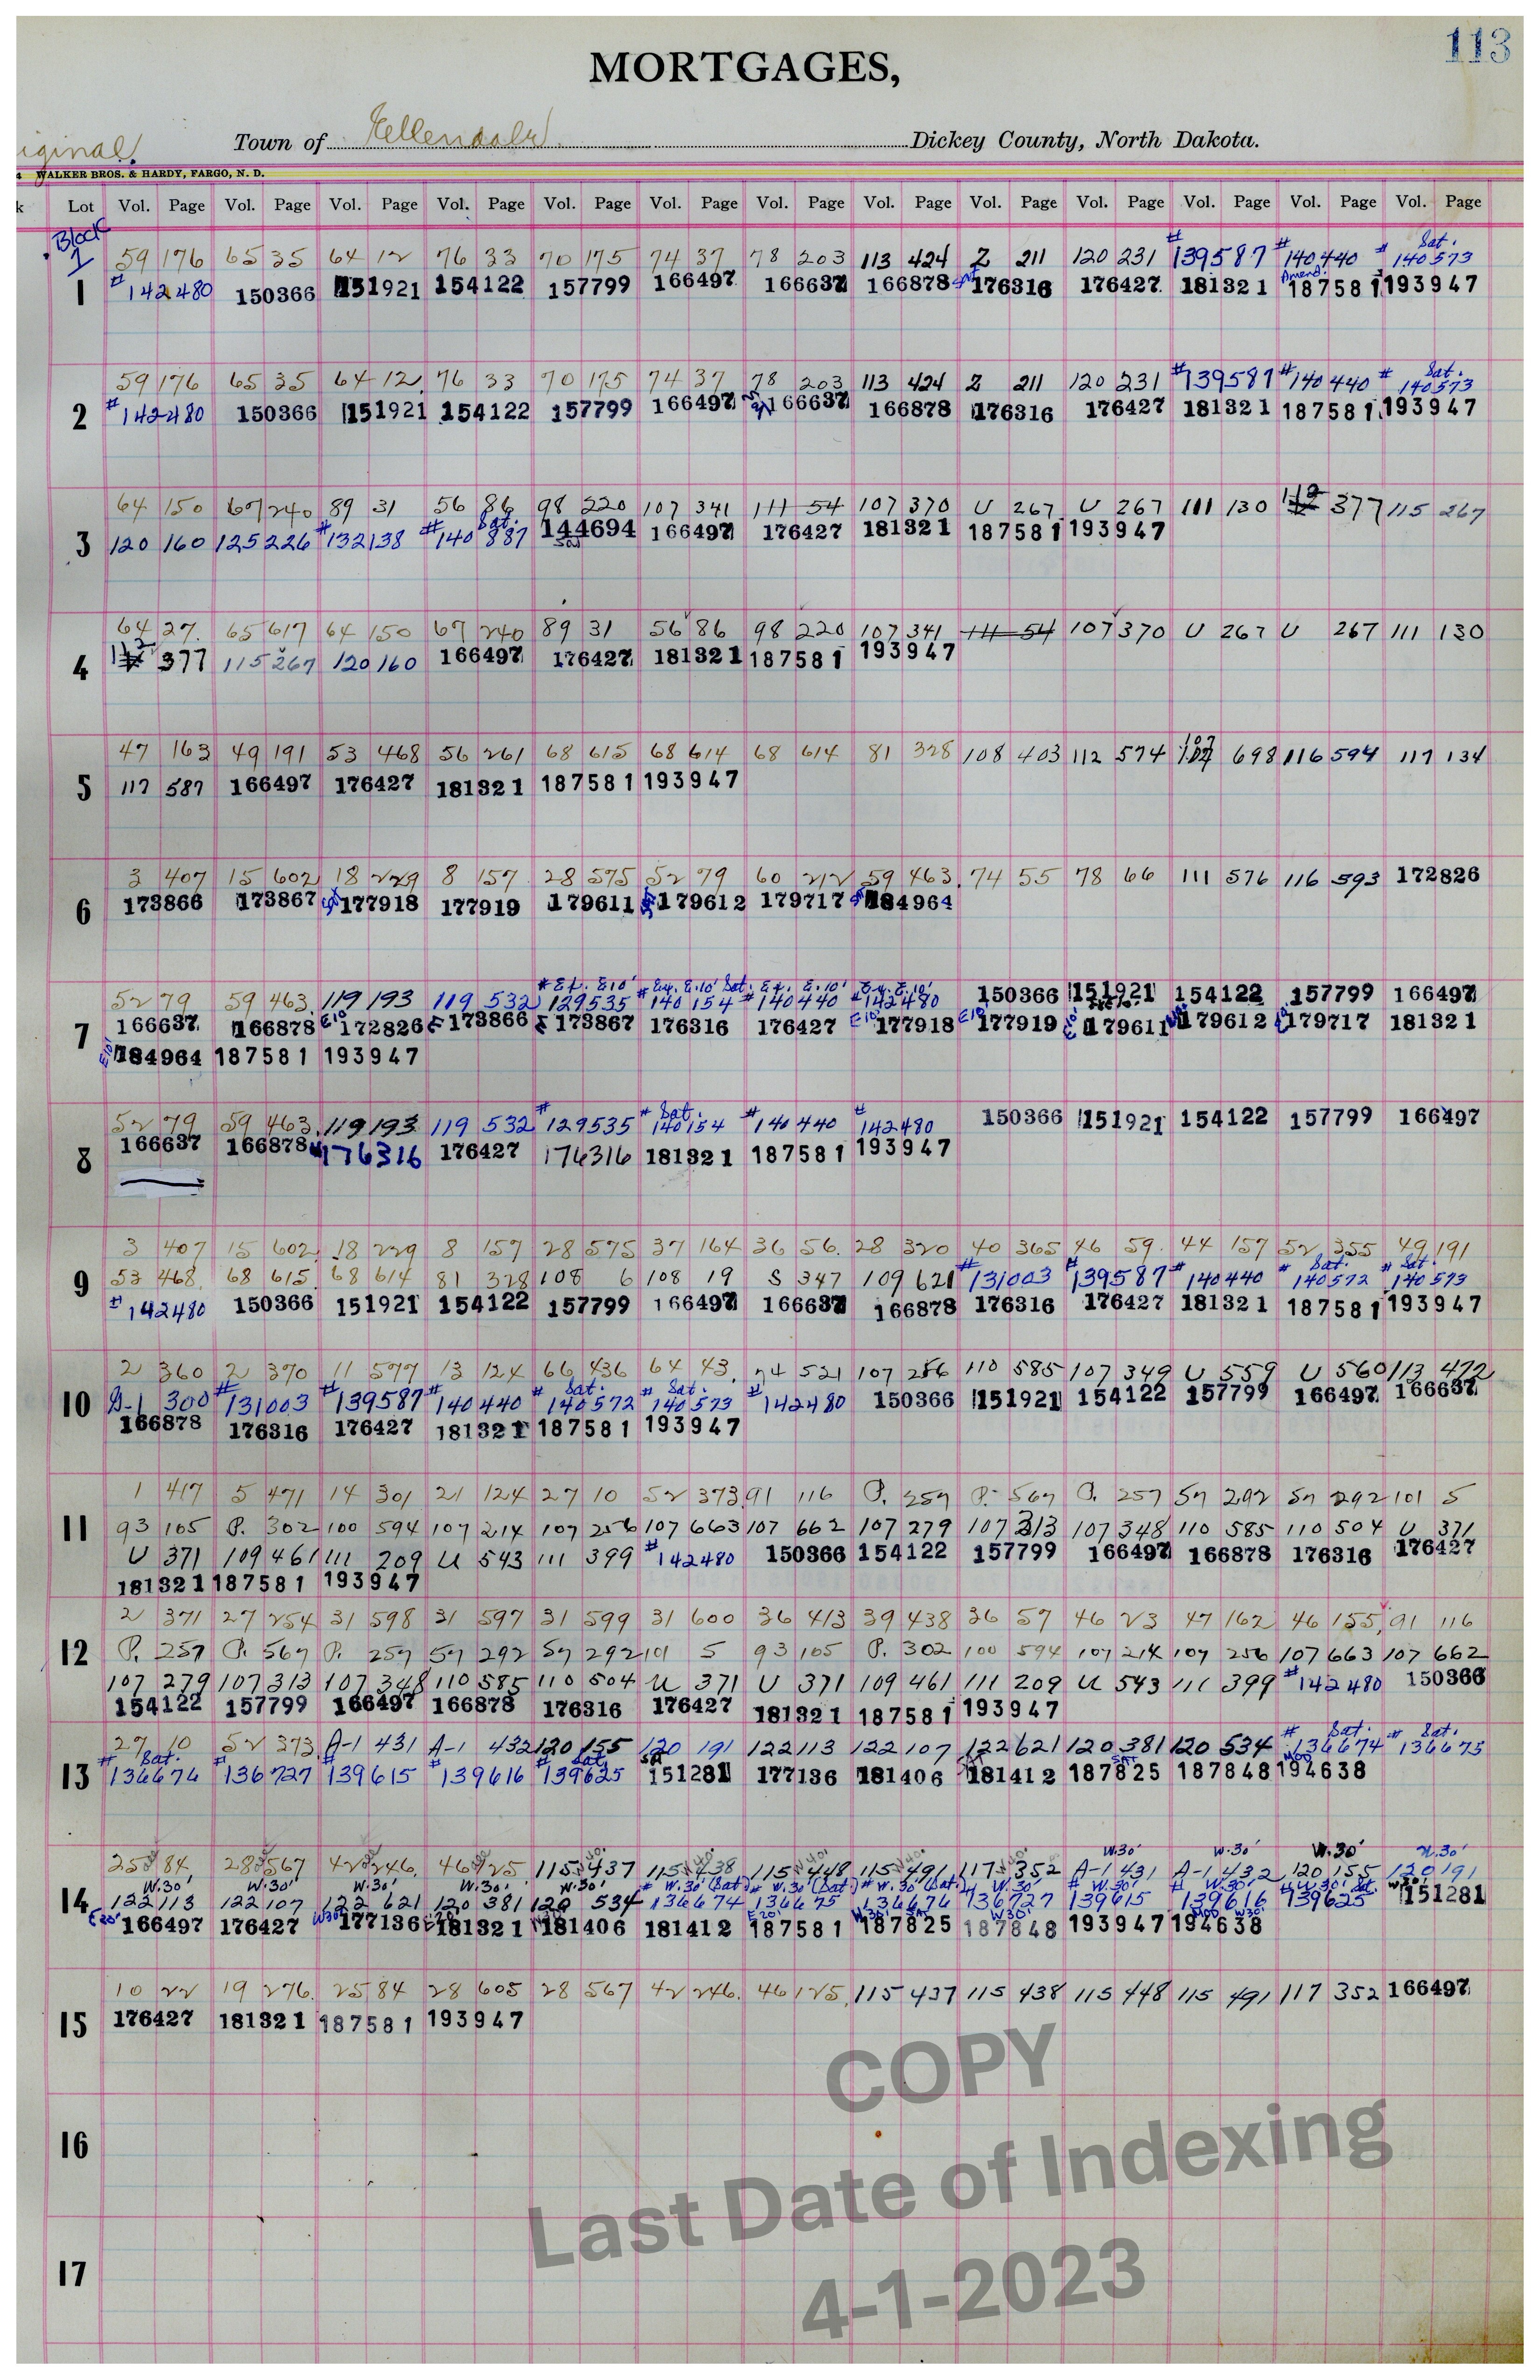 113
MORTGAGES,
iginal. Town of Ellendale Dickey County, North Dakota.
4 WALKER BROS. & HARDY, FARGO, N. D.
k Lot Vol. Page Vol. Page Vol. Page Vol. Page Vol. Page Vol. Page Vol. Page Vol. Page Vol. Page Vol. Page Vol. Page Vol. Page Vol. Page
Block 1
59 176 65 35 64 12 76 33 70 175 74 37 78 203 113 424 Z 211 120 231 #139587 #140440 # Sat. 140573
1 #142480 150366 151921 154122 157799 166497 166637 166878 176316 176427 181321 Amend. 187581 193947
59 176 65 35 64 12 76 33 70 175 74 37 78 203 113 424 Z 211 120 231 #139587 #140440 # Sat. 140573
2 #142480 150366 151921 154122 157799 166497 166637 166878 176316 176427 181321 187581 193947
64 150 67 240 89 31 56 86 98 220 107 341 111 54 107 370 U 267 U 267 111 130 112 377 115 267
3 120 160 125 226 #132138 #140887 Sat. 144694 166497 176427 181321 187581 193947
64 27 65 617 64 150 67 240 89 31 56 86 98 220 107 341 111 54 107 370 U 267 U 267 111 130
4 112 377 115 267 120 160 166497 176427 181321 187581 193947
47 163 49 191 53 468 56 261 68 615 68 614 68 614 81 328 108 403 112 574 107 698 116 594 117 134
5 117 587 166497 176427 181321 187581 193947
3 407 15 602 18 229 8 157 28 575 52 79 60 212 59 463 74 55 78 66 111 576 116 593 172826
6 173866 173867 177918 177919 179611 179612 179717 184964
52 79 59 463 119 193 119 532 # Ex. E10' 129535 # Ex. E.10' Sat. 140154 # Ex. E.10' 140440 # Ex. E.10' 142480 150366 151921 154122 157799 166497
7 166637 166878 E10' 172826 E 173866 E 173867 176316 176427 E10' 177918 E10' 177919 E10' 179611 179612 179717 181321
E10' 184964 187581 193947
52 79 59 463 119 193 119 532 #129535 # Sat. 140154 #140440 #142480 150366 151921 154122 157799 166497
8 166637 166878 176316 176427 176316 181321 187581 193947
3 407 15 602 18 229 8 157 28 575 37 164 36 56 28 320 40 365 46 59 44 157 52 355 49 191
9 53 468 68 615 68 614 81 328 108 6 108 19 S 347 109 621 #131003 #139587 #140440 # Sat. 140572 # Sat. 140573
#142480 150366 151921 154122 157799 166497 166637 166878 176316 176427 181321 187581 193947
2 360 2 370 11 577 13 124 66 436 64 43 74 521 107 256 110 585 107 349 U 559 U 560 113 472
10 A-1 300 #131003 #139587 #140440 # Sat. 140572 # Sat. 140573 #142480 150366 151921 154122 157799 166497 166637
166878 176316 176427 181321 187581 193947
1 417 5 471 14 301 21 124 27 10 52 373 91 116 P. 257 P. 567 P. 257 57 292 57 292 101 5
11 93 105 P. 302 100 594 107 214 107 256 107 663 107 662 107 279 107 313 107 348 110 585 110 504 U 371
U 371 109 461 111 209 U 543 111 399 #142480 150366 154122 157799 166497 166878 176316 176427
181321 187581 193947
2 371 27 254 31 598 31 597 31 599 31 600 36 413 39 438 36 57 46 23 47 162 46 155 91 116
12 P. 257 P. 567 P. 257 57 292 57 292 101 5 93 105 P. 302 100 594 107 214 107 256 107 663 107 662
107 279 107 313 107 348 110 585 110 504 U 371 U 371 109 461 111 209 U 543 111 399 #142480 150366
154122 157799 166497 166878 176316 176427 181321 187581 193947
27 10 52 373 A-1 431 A-1 432 120 155 120 191 122 113 122 107 122 621 120 381 120 534 # Sat. 136674 # Sat. 136675
13 # Sat. 136676 #136727 #139615 #139616 # Sat. 139625 Sat 151281 177136 181406 181412 SAT 187825 187848 MOD 194638
25 84 28 567 42 246 46 125 115 437 115 438 115 448 115 491 117 352 W.30' A-1 431 W.30' A-1 432 W.30' 120 155 W.30' 120 191
14 W.30' 122 113 W.30' 122 107 W.30' 122 621 W.30' 120 381 W.30' 120 534 # W.30' (Sat.) 136674 # W.30' (Sat.) 136675 # W.30' (Sat.) 136676 # W.30' 136727 # W.30' 139615 # W.30' 139616 # W.30' Sat. 139625 W30' 151281
E20' 166497 176427 W30' 177136 181321 181406 181412 E20' 187581 W30' SAT 187825 W30' 187848 193947 MOD W30' 194638
10 22 19 276 25 84 28 605 28 567 42 246 46 125 115 437 115 438 115 448 115 491 117 352 166497
15 176427 181321 187581 193947
16
17
COPY
Last Date of Indexing
4-1-2023